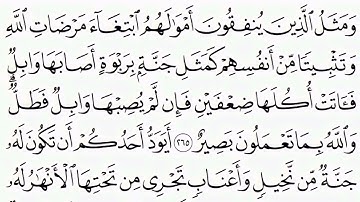 وَمَثَلُ ٱلَّذِينَ يُنفِقُونَ أَمْوَٰلَهُمُ ٱبْتِغَآءَ مَرْضَاتِ ٱللَّهِ
وَتَثْبِيتًا مِّنْ أَنفُسِهِمْ كَمَثَلِ جَنَّةٍۭ بِرَبْوَةٍ أَصَابَهَا وَابِلٌ
فَـَٔاتَتْ أُكُلَهَا ضِعْفَيْنِ فَإِن لَّمْ يُصِبْهَا وَابِلٌ فَطَلٌّ
وَٱللَّهُ بِمَا تَعْمَلُونَ بَصِيرٌ ٢٦٥ أَيَوَدُّ أَحَدُكُمْ أَن تَكُونَ لَهُۥ
جَنَّةٌ مِّن نَّخِيلٍ وَأَعْنَابٍ تَجْرِى مِن تَحْتِهَا ٱلْأَنْهَٰرُ لَهُۥ